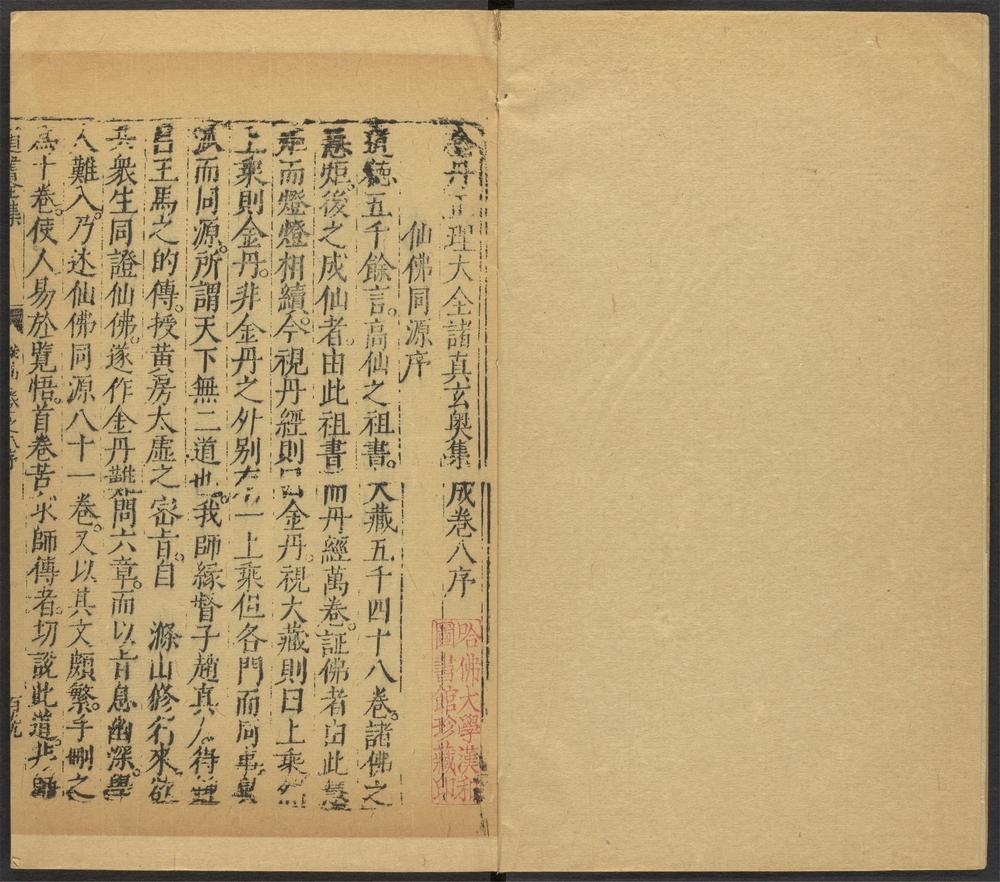 金丹正理大全諸真玄奧集成卷八序
仙佛同源序
道德五千餘言。高仙之祖書。大藏五千四十八卷。諸佛之
慧炬。後之成仙者。由此祖書而丹經萬卷。証佛者由此慧
炬而燈燈相續。今視丹經則曰金丹。視大藏則曰上乘。然
上乘則金丹。非金丹之外別有一上乘但各門而同事異
派而同源。所謂天下無二道也。我師緣督子趙真人得鍾
呂王馬之的傳。授黃房太虛之密旨自 滌山修行來。欲
與衆生同證仙佛。遂作金丹難問六章。而以旨息幽深。學
人難入。乃述仙佛同源八十一卷。又以其文頗繁。手刪之
爲十卷。使人易於覽悟。首卷苦求師傳者。切說此道。非師
道書全集
卷之八序
哈佛大學漢和
圖書館珍藏印